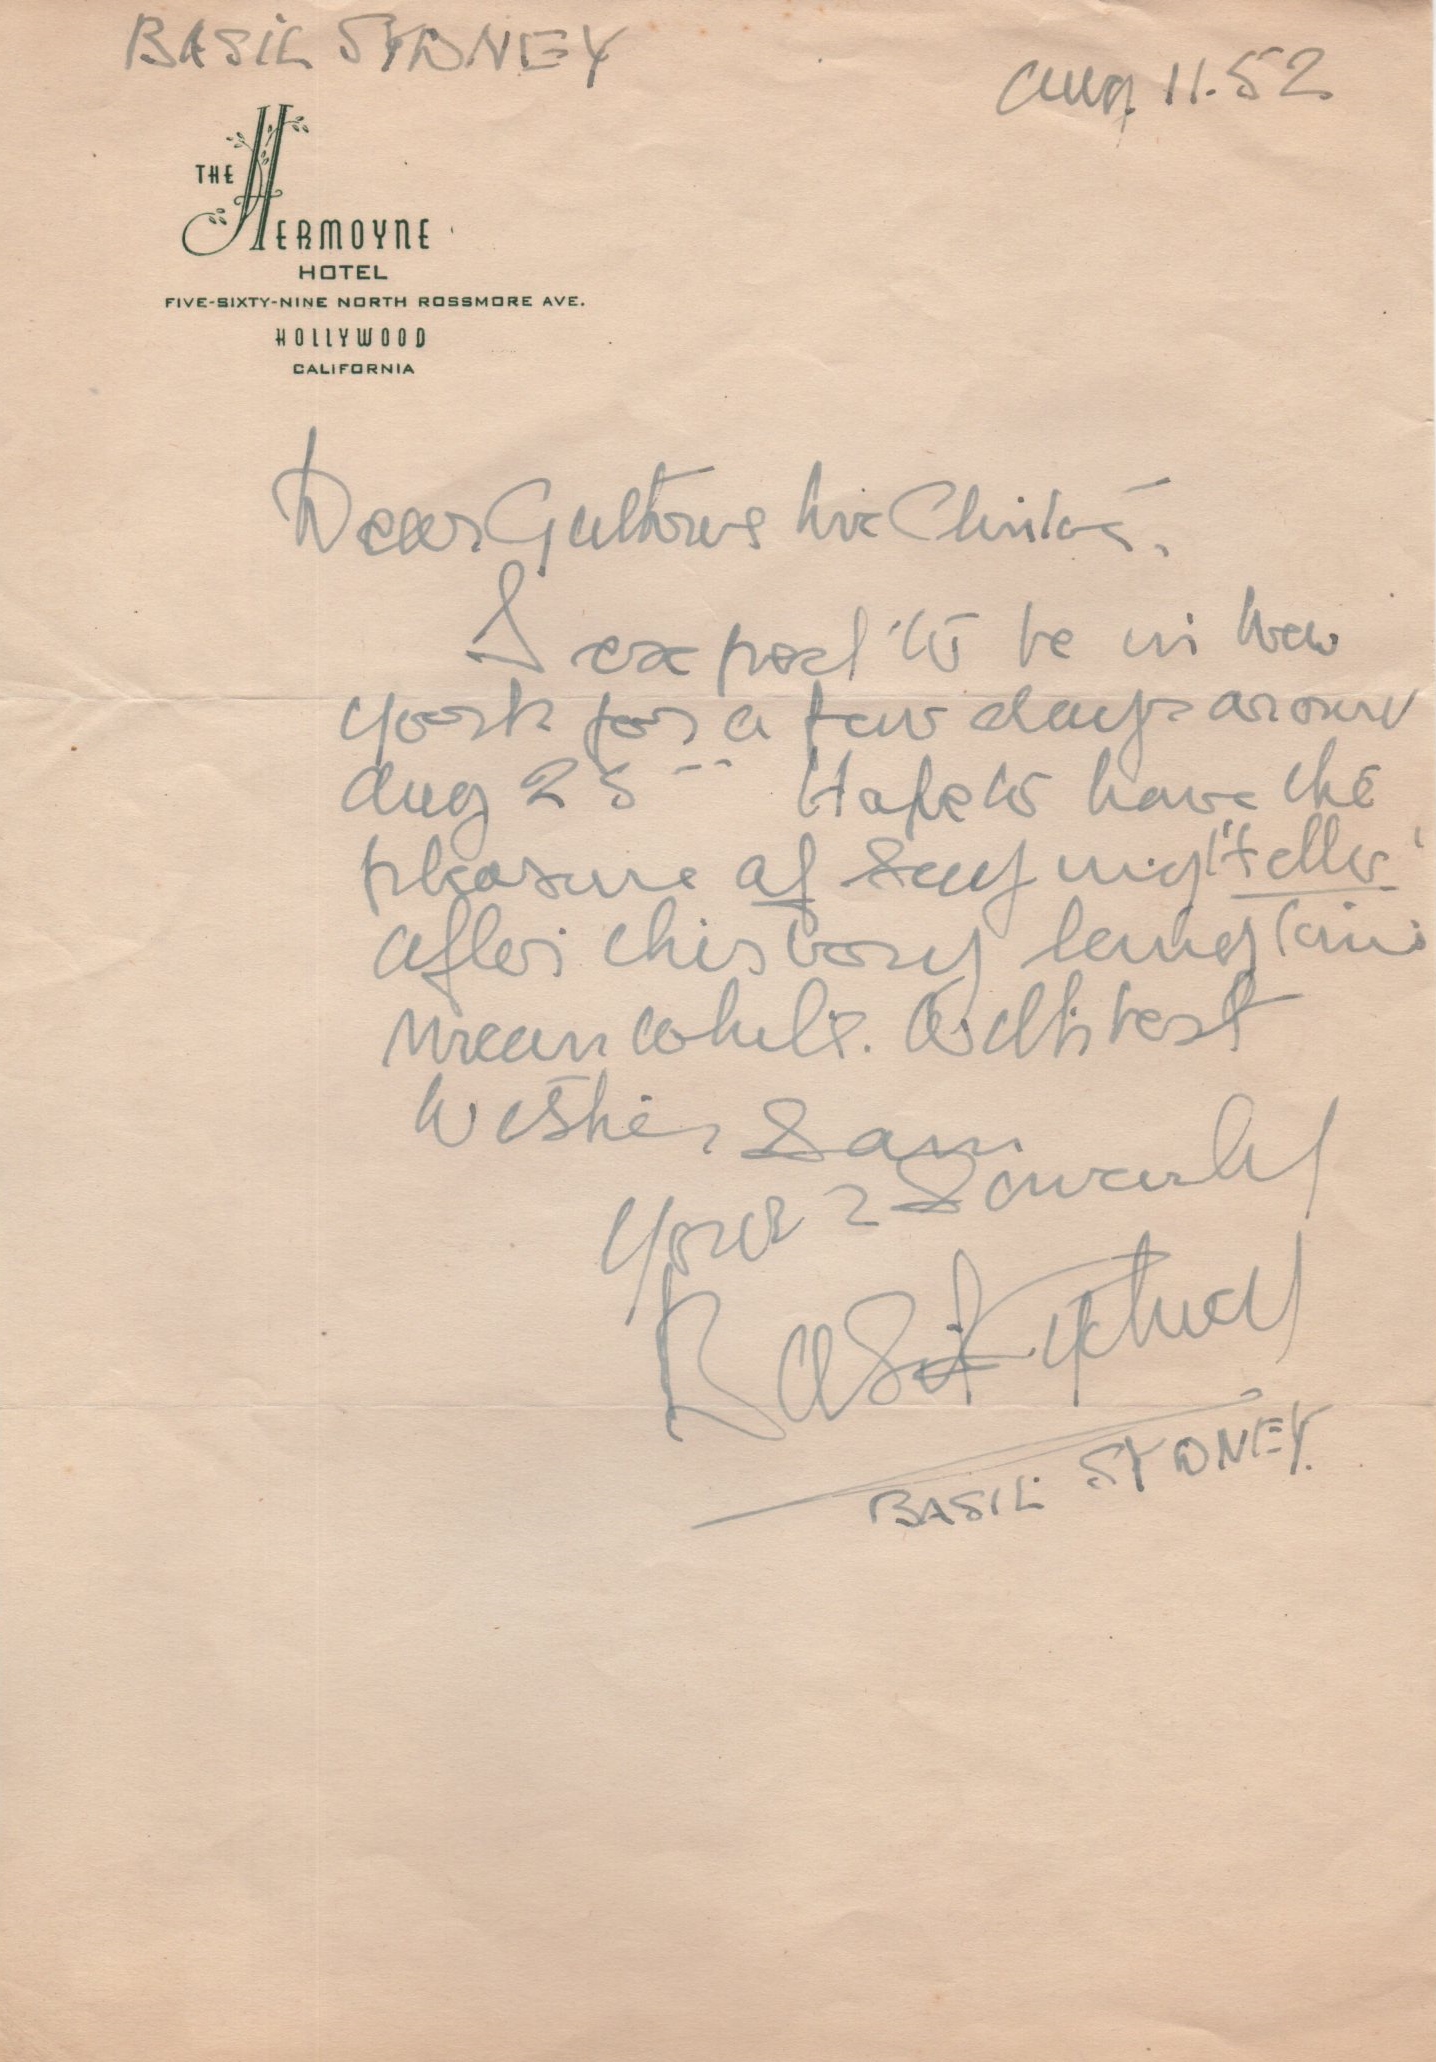 BASIL SYDNEY
Aug. 11.52
THE HERMOYNE
HOTEL
FIVE-SIXTY-NINE NORTH ROSSMORE AVE.
HOLLYWOOD
CALIFORNIA
Dear Guthrie McClintic.
I expect to be in New
York for a few days around
Aug 25 -- Hope to have the
pleasure of saying "hello"
after this very long time
Meanwhile. With best
wishes I am
Yours Sincerely
Basil Sydney
BASIL SYDNEY.